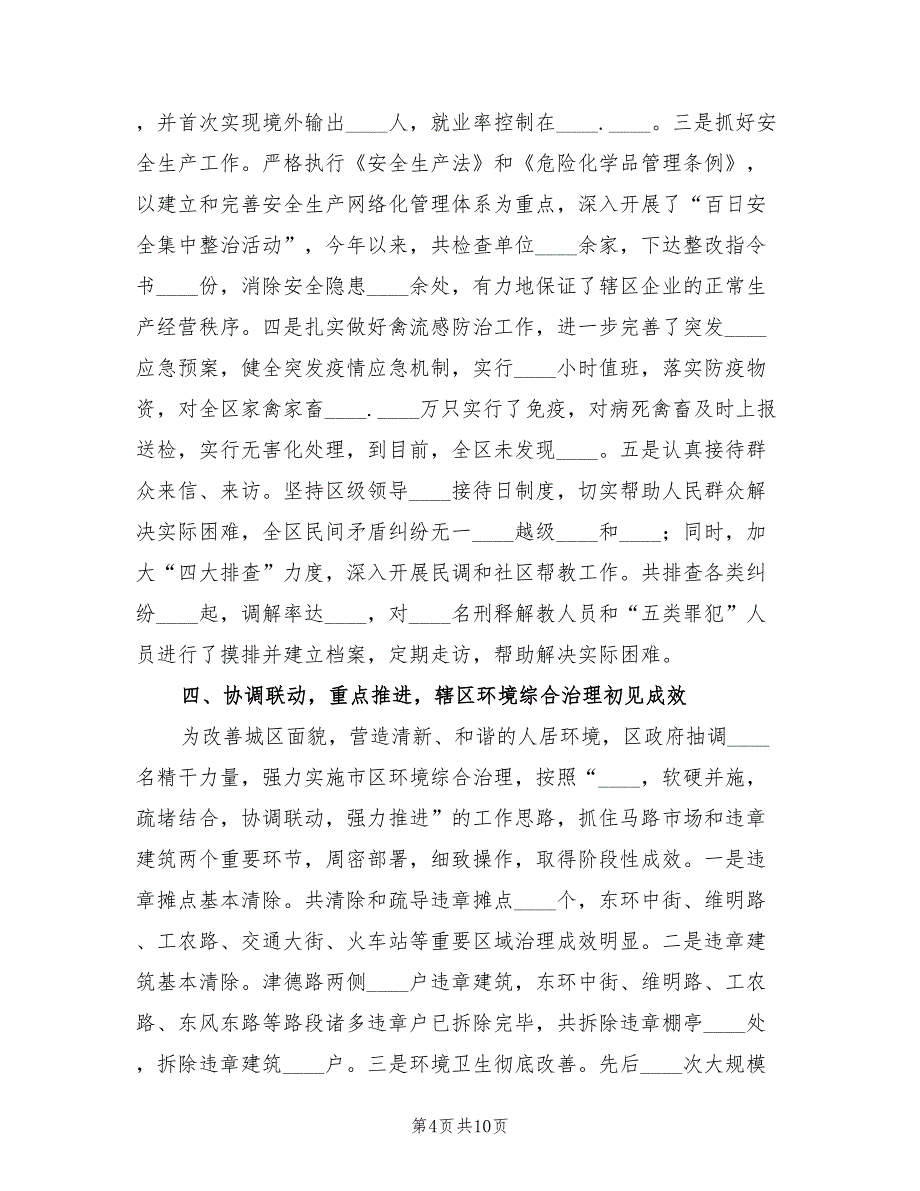 ，并首次实现境外输出____人，就业率控制在____.____。三是抓好安
全生产工作。严格执行《安全生产法》和《危险化学品管理条例》，
以建立和完善安全生产网络化管理体系为重点，深入开展了“百日安
全集中整治活动”，今年以来，共检查单位____余家，下达整改指令
书____份，消除安全隐患____余处，有力地保证了辖区企业的正常生
产经营秩序。四是扎实做好禽流感防治工作，进一步完善了突发____
应急预案，健全突发疫情应急机制，实行____小时值班，落实防疫物
资，对全区家禽家畜____.____万只实行了免疫，对病死禽畜及时上报
送检，实行无害化处理，到目前，全区未发现____。五是认真接待群
众来信、来访。坚持区级领导____接待日制度，切实帮助人民群众解
决实际困难，全区民间矛盾纠纷无一____越级____和____；同时，加
大“四大排查”力度，深入开展民调和社区帮教工作。共排查各类纠
纷____起，调解率达____，对____名刑释解教人员和“五类罪犯”人
员进行了摸排并建立档案，定期走访，帮助解决实际困难。
四、协调联动，重点推进，辖区环境综合治理初见成效
为改善城区面貌，营造清新、和谐的人居环境，区政府抽调____
名精干力量，强力实施市区环境综合治理，按照“____，软硬并施，
疏堵结合，协调联动，强力推进”的工作思路，抓住马路市场和违章
建筑两个重要环节，周密部署，细致操作，取得阶段性成效。一是违
章摊点基本清除。共清除和疏导违章摊点____个，东环中街、维明路
、工农路、交通大街、火车站等重要区域治理成效明显。二是违章建
筑基本清除。津德路两侧____户违章建筑，东环中街、维明路、工农
路、东风东路等路段诸多违章户已拆除完毕，共拆除违章棚亭____处
，拆除违章建筑____户。三是环境卫生彻底改善。先后____次大规模
第4页共10页